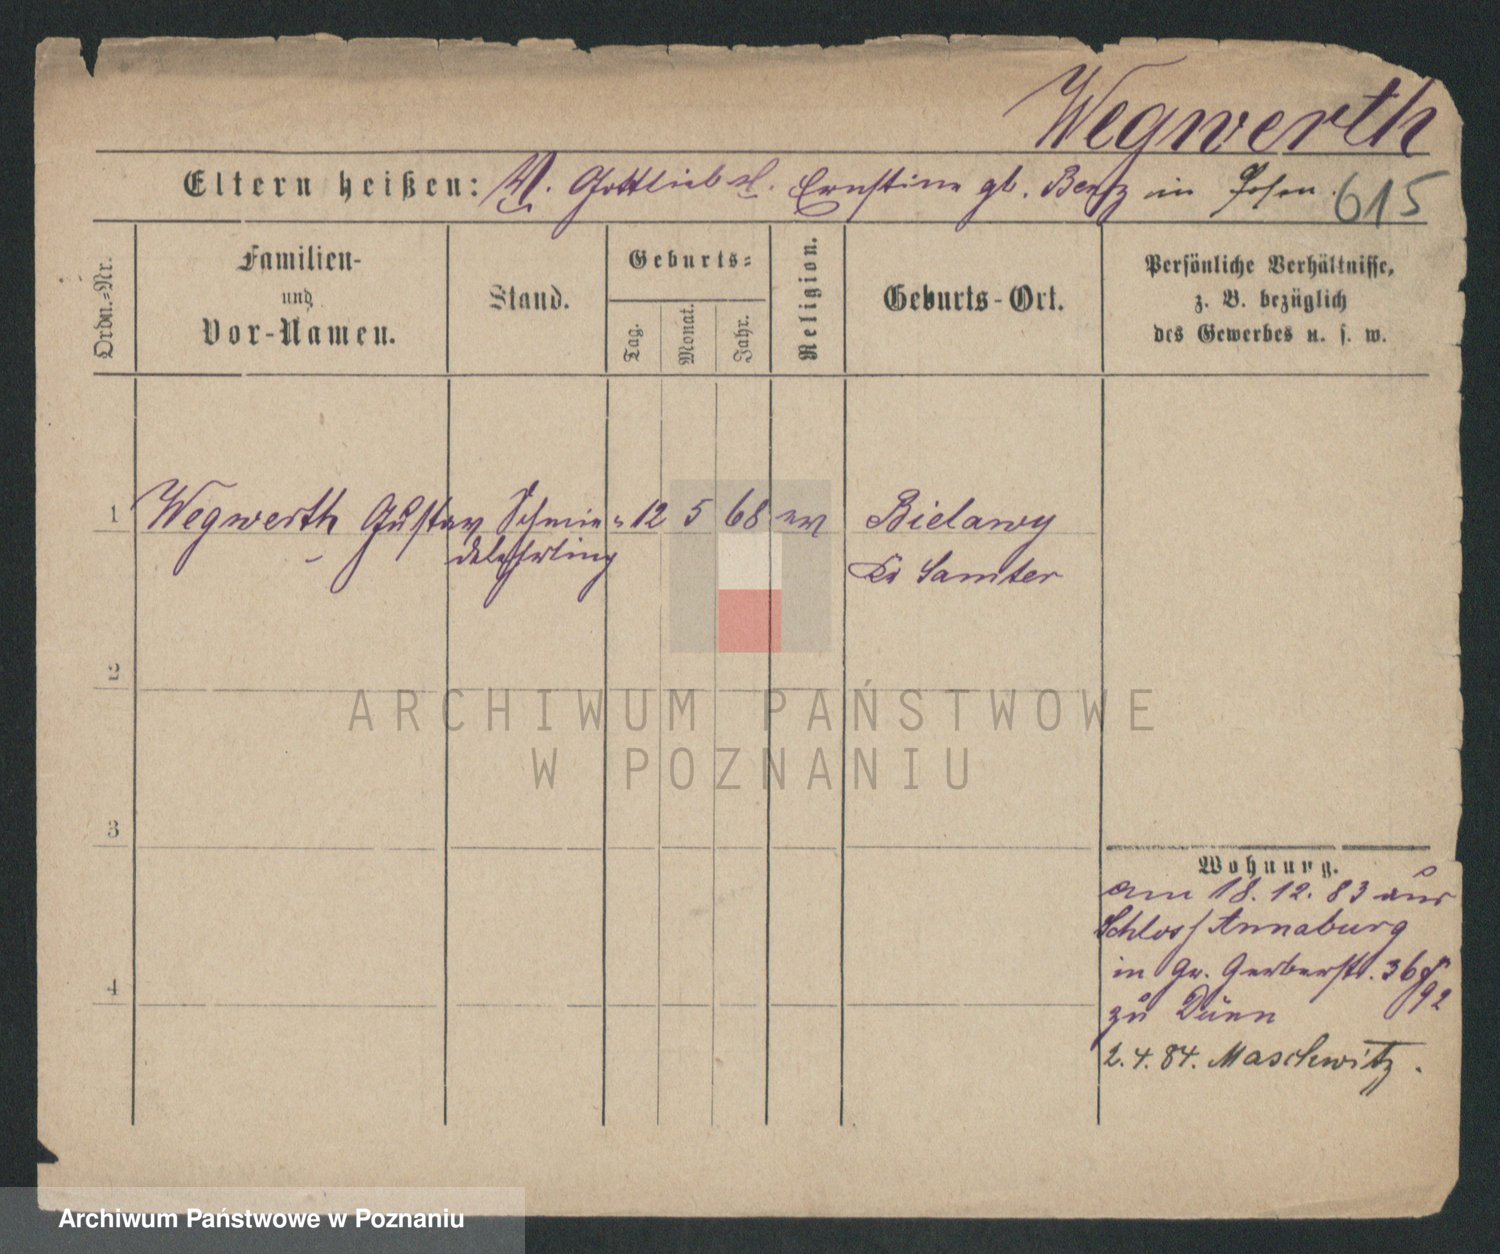 Wegwerth
Eltern heißen: W. Gottlieb u. Ernstine gb. Benz in Posen. 615
Ordn.=Nr.
Familien-
und
Vor-Namen.
Stand.
Geburts=
Tag.
Monat.
Jahr.
Religion.
Geburts-Ort.
Persönliche Verhältnisse,
z. B. bezüglich
des Gewerbes u. s. w.
1 Wegwerth Gustav Schmie= 12 5 68 ev Bielawy
delehrling Kr Samter
2
ARCHIWUM PAŃSTWOWE
W POZNANIU
3
Wohnung.
am 18.12.83 aus
Schloss Annaburg
in Gr. Gerberstr. 36
92
zu Dünn
4
2.4.84. Maschwitz.
Archiwum Państwowe w Poznaniu